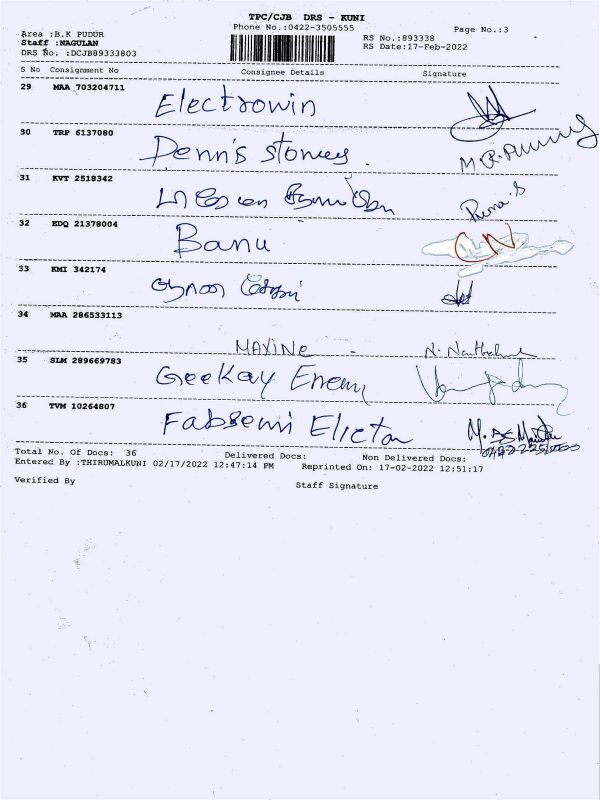 TPC/CJB DRS - KUNI
Phone No.:0422-3505555
Page No.:3
Area :B.K PUDUR
RS No.:893338
Staff :NAGULAN
RS Date:17-Feb-2022
DRS No. :DCJB89333803
S No Consignment No Consignee Details Signature
29 MAA 703204711 Electrowin
30 TRP 6137080 Dennis
31 KVT 2518342
32 EDQ 21378004 Banu CN
33 KMI 342174
34 MAA 286533113 MAXINE
35 SLM 289669783 GeeKay
36 TVM 10264807 Fabsemi
Total No. Of Docs: 36 Delivered Docs: Non Delivered Docs:
Entered By :THIRUMALKUNI 02/17/2022 12:47:14 PM Reprinted On: 17-02-2022 12:51:17
Verified By Staff Signature